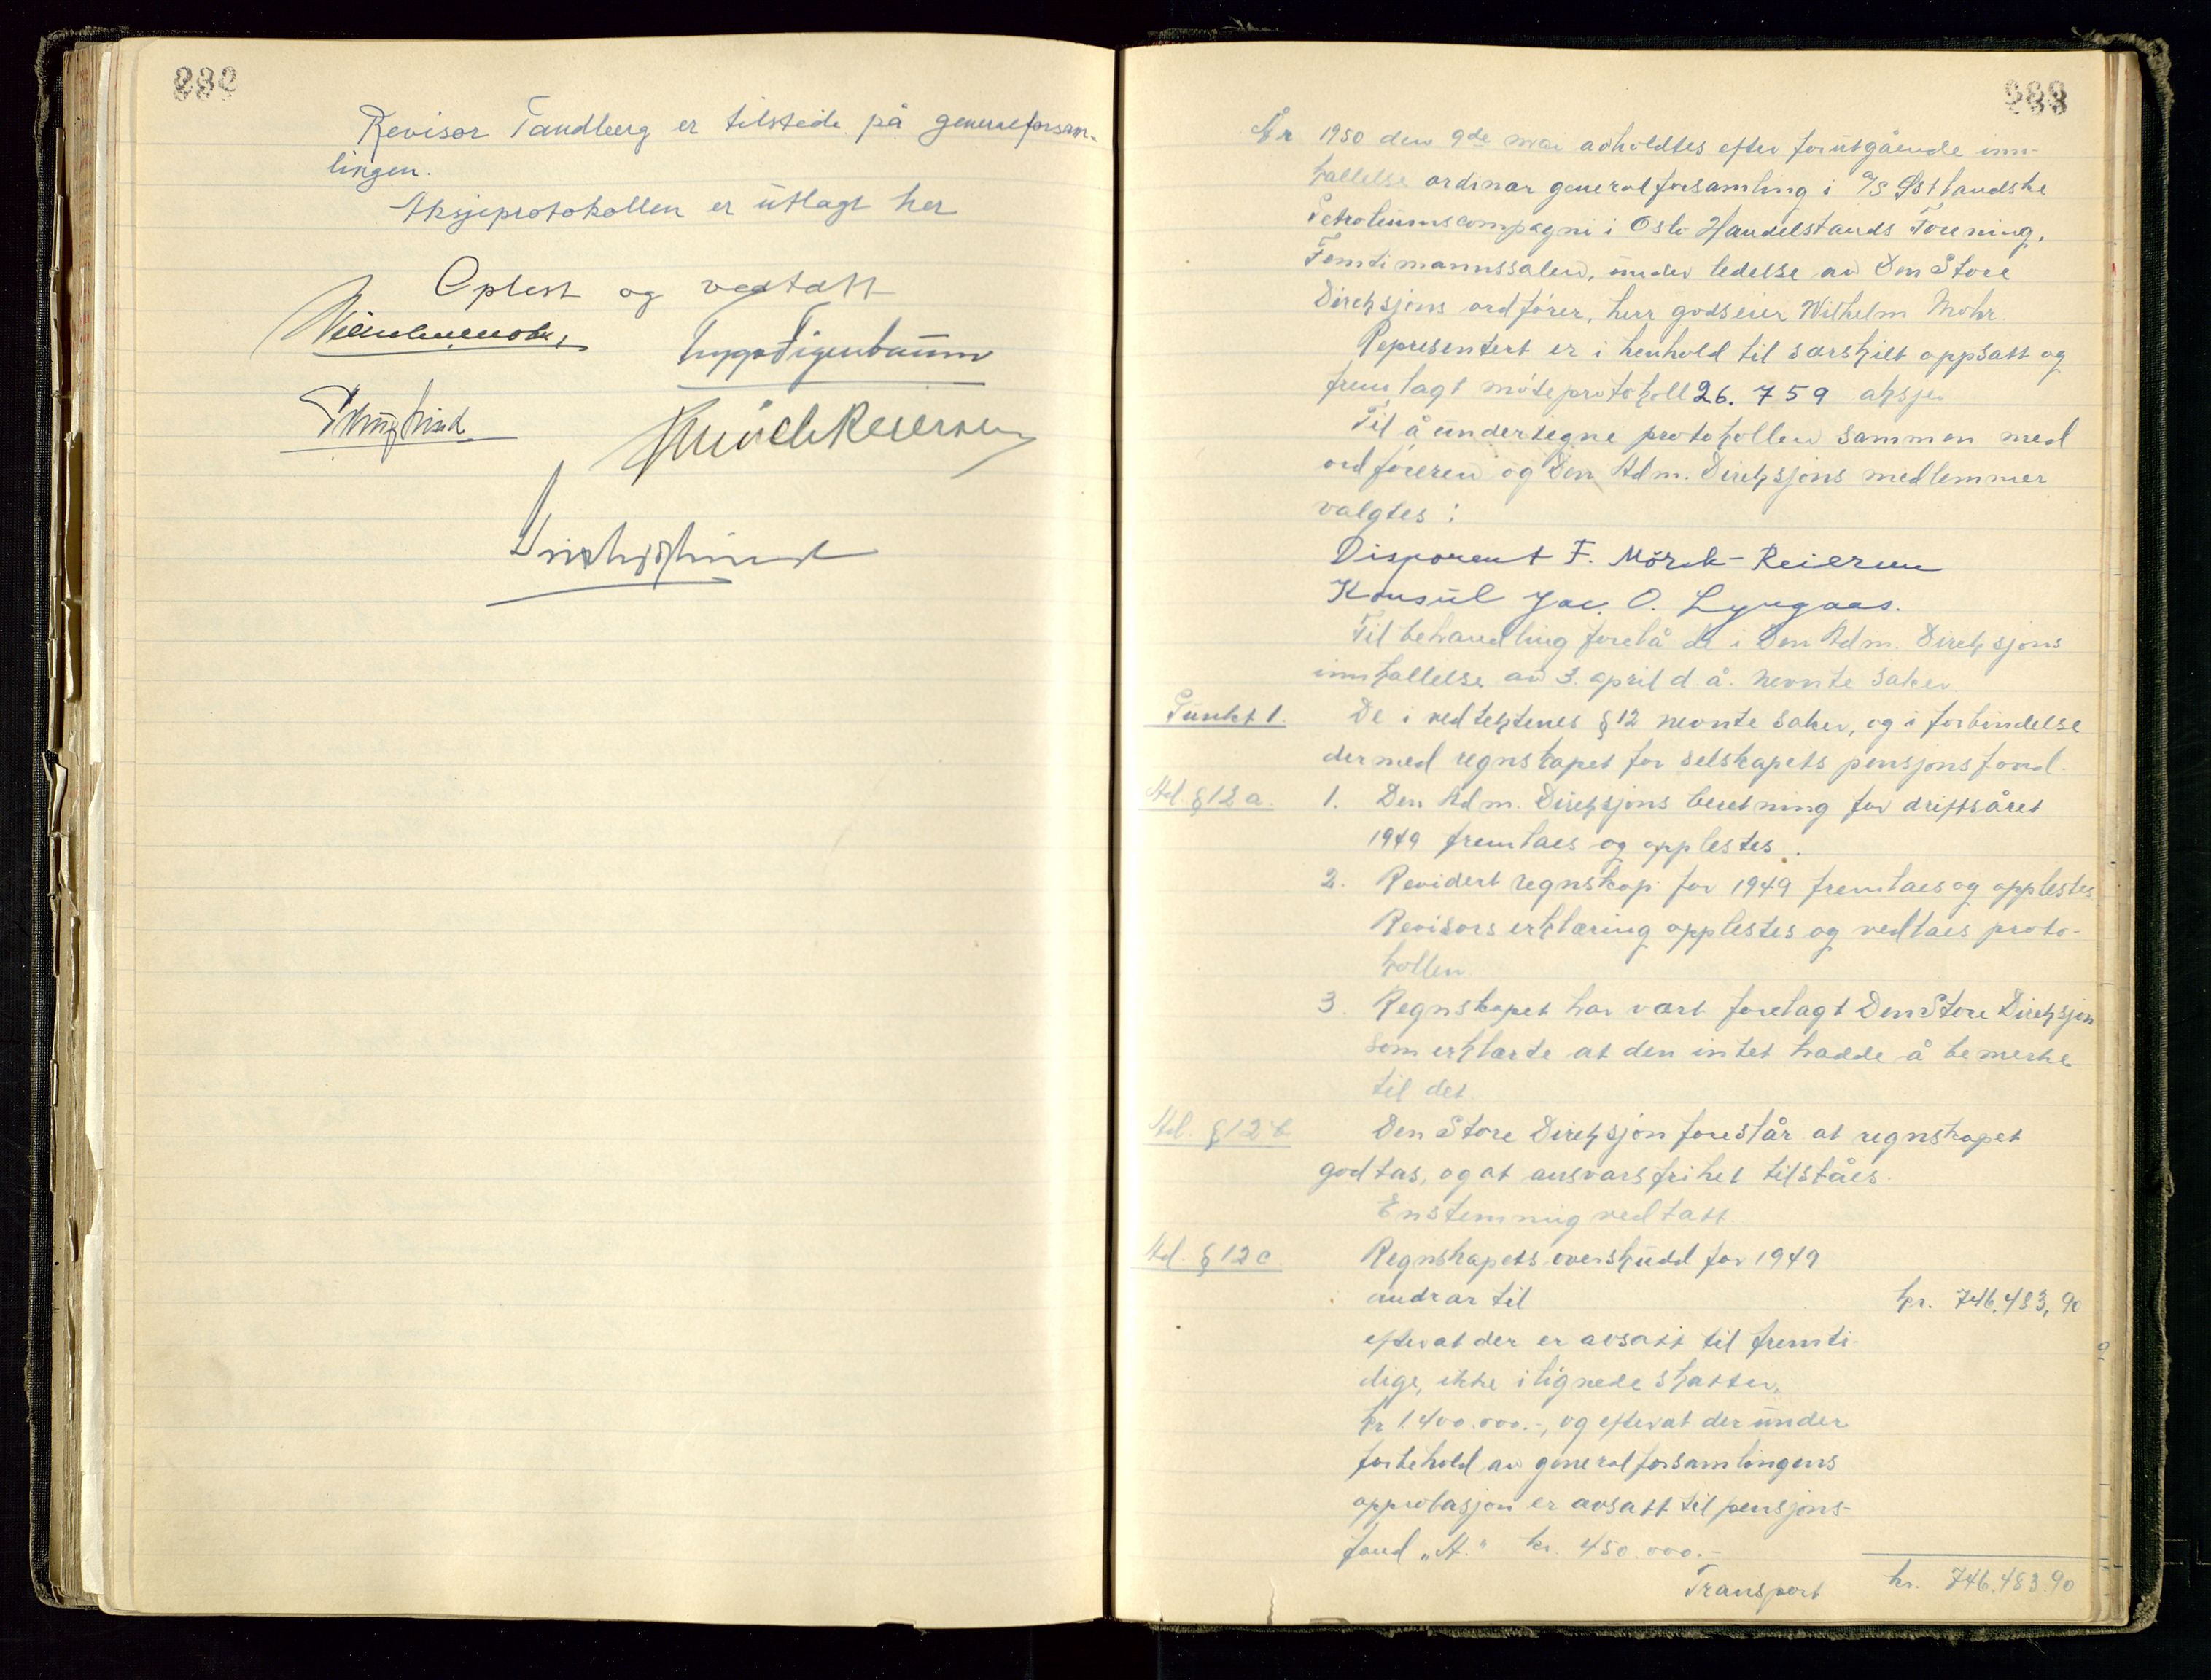 232
Revisor Tandberg er tilstede på generalforsam-
lingen.
Aksjeprotokollen er utlagt her
Oplest og vedtatt
233
År 1950 den 9de mai avholdtes efter forutgående inn-
kallelse ordinær generalforsamling i A/S Østlandske
Petroleumscompagni i Oslo Handelstands Forening,
Femtimannssalen, under ledelse av Den Store
Direksjons ordfører, herr godseier Wilhelm Mohr.
Representert er i henhold til særskilt oppsatt og
fremlagt møteprotokoll 26.759 aksjer
Til å undertegne protokollen sammen med
ordføreren og Den Adm. Direksjons medlemmer
valgtes:
Disponent F. Mörch-Reiersen
Konsul Jac. O. Lyngaas.
Til behandling forelå de i Den Adm. Direksjons
innkallelse av 3. april d.å. nevnte saker.
Punkt 1. De i vedtektenes § 12 nevnte saker, og i forbindelse
dermed regnskapet for selskapets pensjonsfond.
Ad. § 12 a. 1. Den Adm. Direksjons beretning for driftsåret
1949 fremlaes og opplestes.
2. Revidert regnskap for 1949 fremlaes og opplestes
Revisors erklæring opplestes og vedlaes proto-
kollen.
3. Regnskapet har vært forelagt Den Store Direksjon
som erklærte at den intet hadde å bemerke
til det.
Ad. § 12 b Den Store Direksjon foreslår at regnskapet
godtas, og at ansvarsfrihet tilståes.
Enstemmig vedtatt.
Ad. § 12 c. Regnskapets overskudd for 1949
andrar til kr. 746.483,90
efter at der er avsatt til fremti-
dige, ikke ilignede skatter,
kr 1.400.000.-, og efter at der under
forbehold av generalforsamlingens
approbasjon er avsatt til pensjons-
fond "A." kr. 450.000.-
Transport kr. 746.483.90